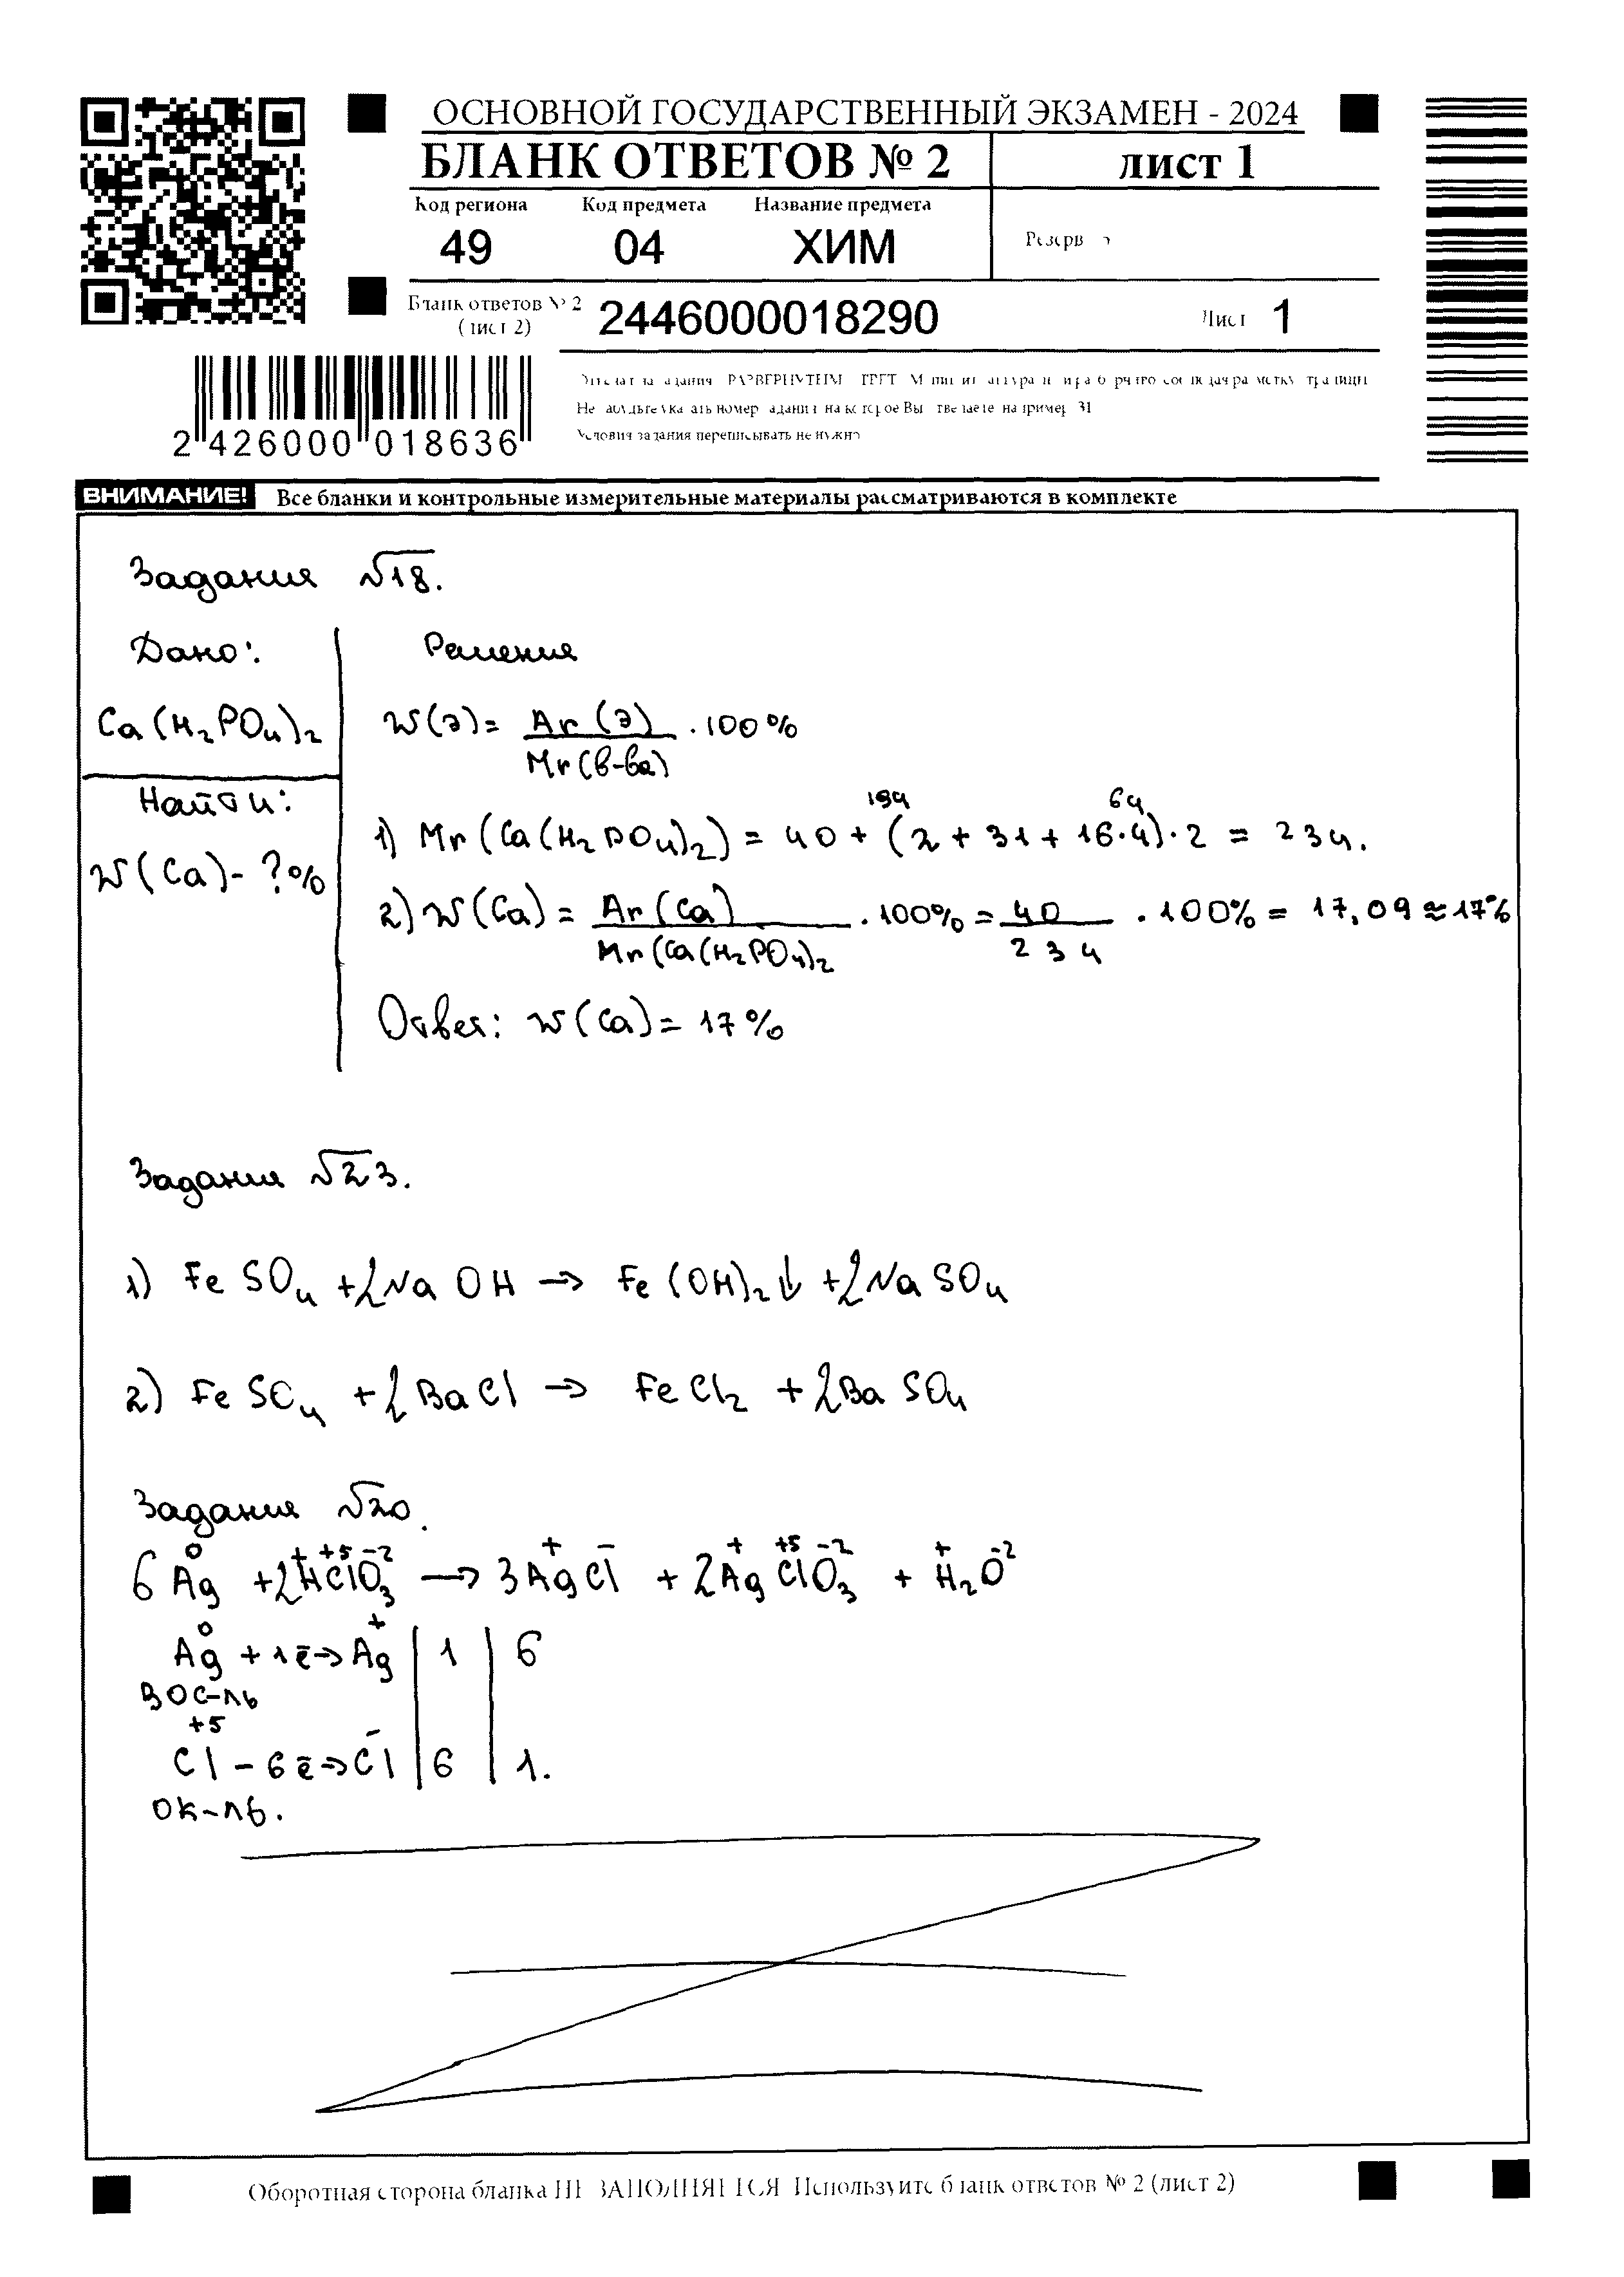 ОСНОВНОЙ ГОСУДАРСТВЕННЫЙ ЭКЗАМЕН - 2024
БЛАНК ОТВЕТОВ № 2
лист 1
Код региона Код предмета Название предмета
49 04 ХИМ
Резерв
Бланк ответов № 2
(лист 2)
2446000018290
Лист 1
2 426000 018636
Не забудьте указать номер задания на которое Вы отвечаете например 31
Условия задания переписывать не нужно
ВНИМАНИЕ! Все бланки и контрольные измерительные материалы рассматриваются в комплекте
Задания №18.
Дано: Решения
Ca(H₂PO₄)₂
W(э) = Ar(э) / Mr(в-ва) · 100%
Найти:
W(Ca) - ?%
194 64
1) Mr(Ca(H₂PO₄)₂) = 40 + (2 + 31 + 16·4)·2 = 234.
2) W(Ca) = Ar(Ca) / Mr(Ca(H₂PO₄)₂ · 100% = 40 / 234 · 100% = 17,09 ≈ 17%
Ответ: W(Ca) = 17%
Задания №23.
1) FeSO₄ + 2NaOH → Fe(OH)₂↓ + 2NaSO₄
2) FeSO₄ + 2BaCl → FeCl₂ + 2BaSO₄
Задания №20.
0 + +5 -2 + - + +5 -2 + -2
6Ag + 2HClO₃ → 3AgCl + 2AgClO₃ + H₂O
0 +
Ag + 1ē → Ag | 1 | 6
вос-ль
+5 -
Cl - 6ē → Cl | 6 | 1.
ок-ль.
Оборотная сторона бланка НЕ ЗАПОЛНЯЕТСЯ Используйте бланк ответов № 2 (лист 2)